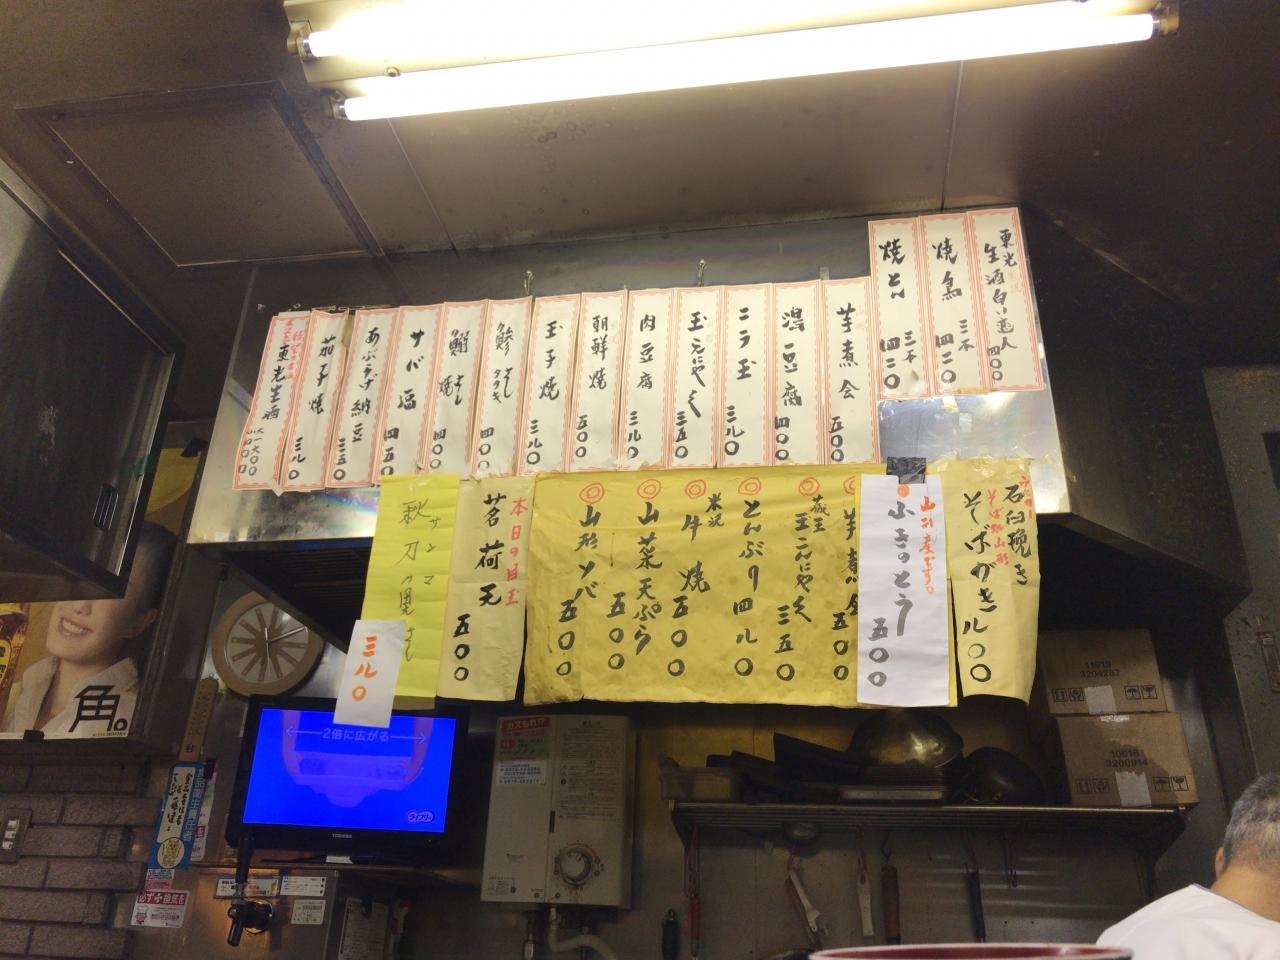 東光
生酒白い恋人 四〇〇
焼鳥 三本 四二〇
焼とん 三本 四二〇
芋煮会 五〇〇
湯豆腐 四〇〇
ニラ玉 三八〇
玉こんにゃく 三五〇
肉豆腐 三八〇
朝鮮焼 五〇〇
玉子焼 三八〇
鯵 さし タタキ 四〇〇
サバ塩 四五〇
あぶらげ納豆 三五〇
茄子焼 三八〇
東光生酒
石臼挽き
そば粉山形
そばがき 八〇〇
山形産です。
ふきのとう 五〇〇
蔵王
玉こんにゃく 三五〇
とんぶり 四八〇
米沢
牛焼 五〇〇
山菜天ぷら 五〇〇
山形ソバ 五〇〇
本日の目玉
茗荷天 五〇〇
サンマ
秋刀魚
三八〇
角。
2倍に広がる
ライフリー
TOSHIBA
ガスもれ!?
食品衛生責任者
11019
3204287
3200914